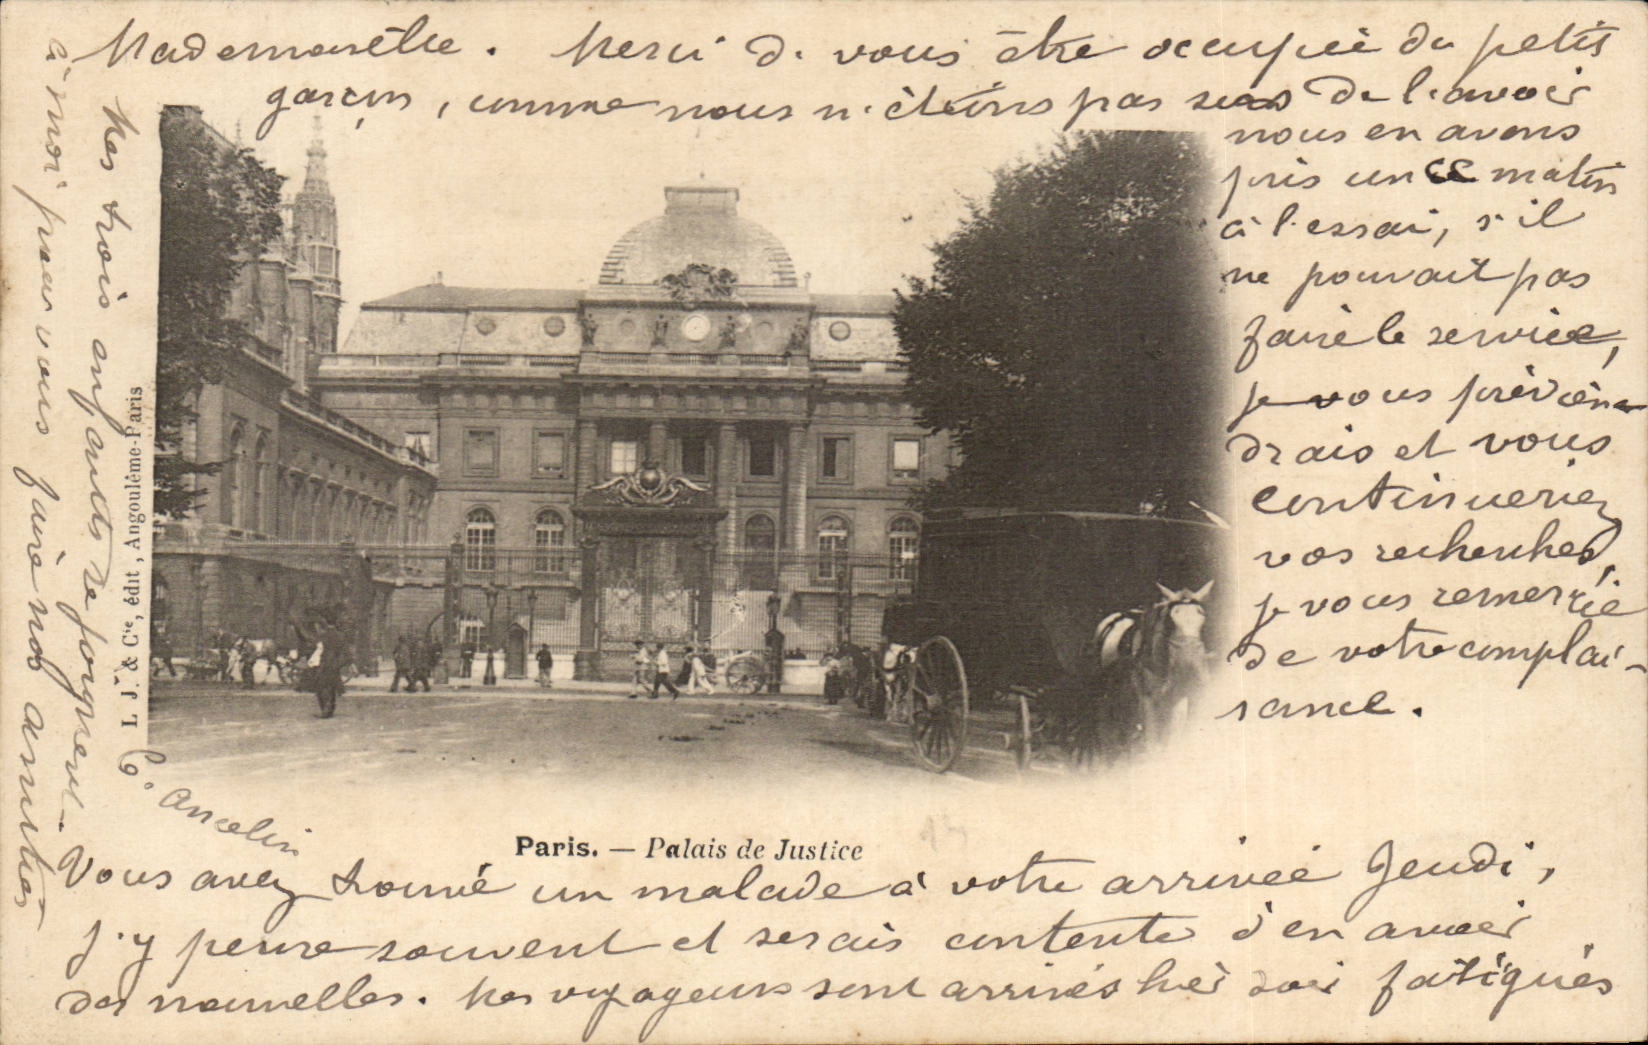 Mademoiselle. Merci d. vous être occupée du petit
garçon, comme nous n'étions pas sûrs de l'avoir
nous en avons
pris un ce matin
à l'essai, s'il
ne pouvait pas
faire le service,
je vous préviên-
drais et vous
continueriez
vos recherches,
je vous remercie
de votre complai-
sance.
Vous avez trouvé un malade à votre arrivée Jeudi,
j'y pense souvent et serais contente d'en avoir
des nouvelles. Nos voyageurs sont arrivés hier soir fatigués
Mes trois enfants se joignent
à moi pour vous faire nos amitiés
G. Ancelin
L. J. & Cie, édit, Angoulême-Paris
Paris. — Palais de Justice